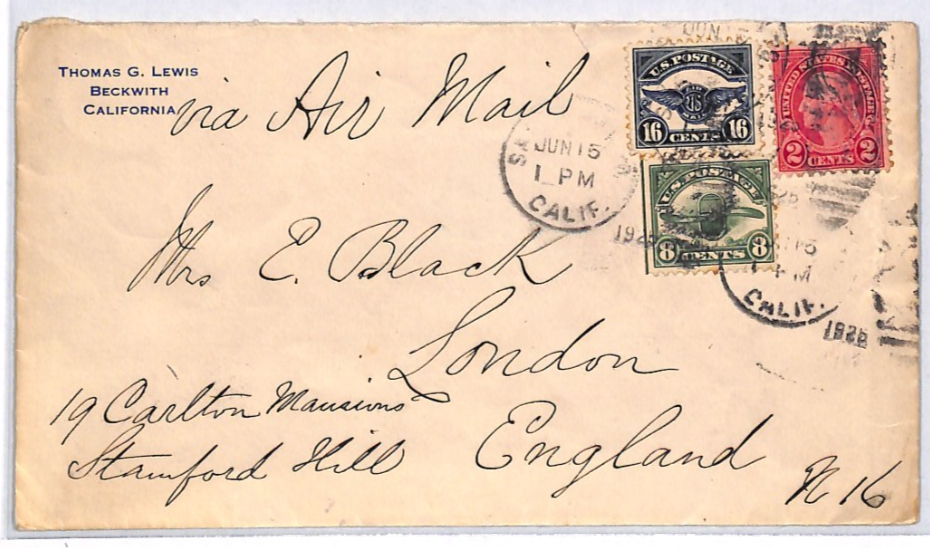 THOMAS G. LEWIS
BECKWITH
CALIFORNIA
via Air Mail
U.S. POSTAGE
AIR
US
MAIL
16 CENTS 16
UNITED STATES POSTAGE
2 CENTS 2
U.S. POSTAGE
8 CENTS 8
JUN 15
1 PM
CALIF.
CALIF.
1926
Mrs E. Black
London
19 Carlton Mansions
Stamford Hill
England
N 16